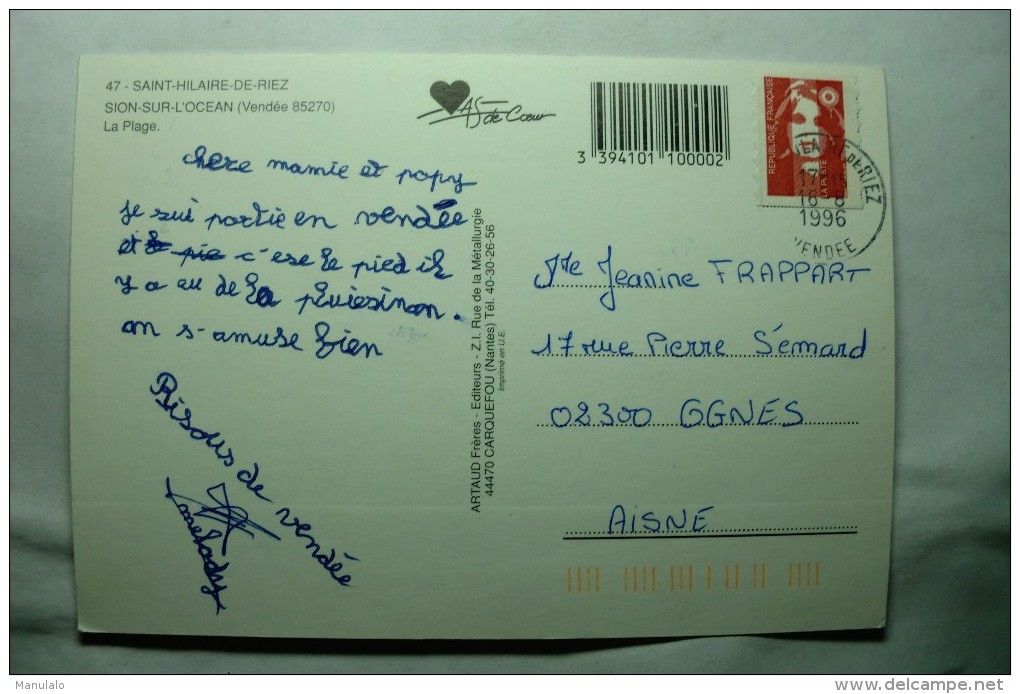 47 - SAINT-HILAIRE-DE-RIEZ
SION-SUR-L'OCEAN (Vendée 85270)
La Plage.
AS de Cœur
3 394101 100002
REPUBLIQUE FRANÇAISE
LA POSTE
DE RIEZ
16-8
1996
VENDEE
chere mamie et papy
je sui partie en vendée
et le pie c'ese le pied il
y a au de la pluiesinon.
on s-amuse bien
Bisous de vendée
melody
ARTAUD Frères - Editeurs - Z.I. Rue de la Métallurgie
44470 CARQUEFOU (Nantes) Tél. 40-30-26-56
Imprimé en U.E.
Jeanine FRAPPART
17 rue Pierre Sémard
02300 OGNES
AISNE
Manulalo
delcampe.net